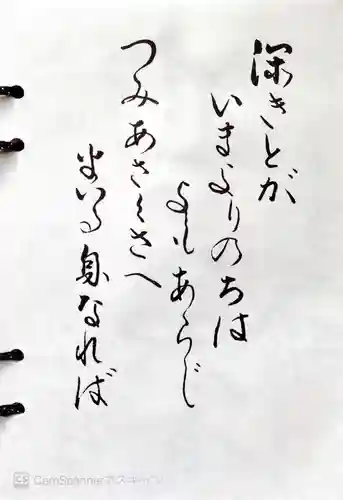 深きとが
いまよりのちは
よもあらじ
つみあさくさへ
まいる身なれば
CamScannerでスキャン